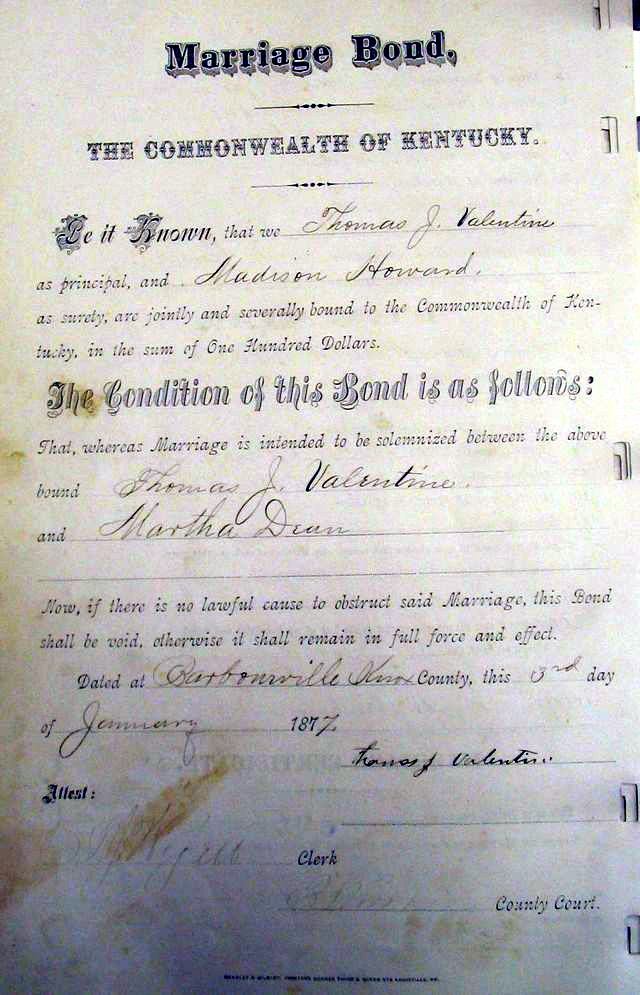 Marriage Bond,
THE COMMONWEALTH OF KENTUCKY.
Be it Known, that we Thomas J. Valentine
as principal, and Madison Howard.
as surety, are jointly and severally bound to the Commonwealth of Ken-
tucky, in the sum of One Hundred Dollars.
The Condition of this Bond is as follows:
That, whereas Marriage is intended to be solemnized between the above
bound Thomas J. Valentine.
and Martha Dean
Now, if there is no lawful cause to obstruct said Marriage, this Bond
shall be void, otherwise it shall remain in full force and effect.
Dated at Barbourville Knox County, this 3rd day
of January 1877
Thomas J Valentine
Attest:
Clerk
County Court.